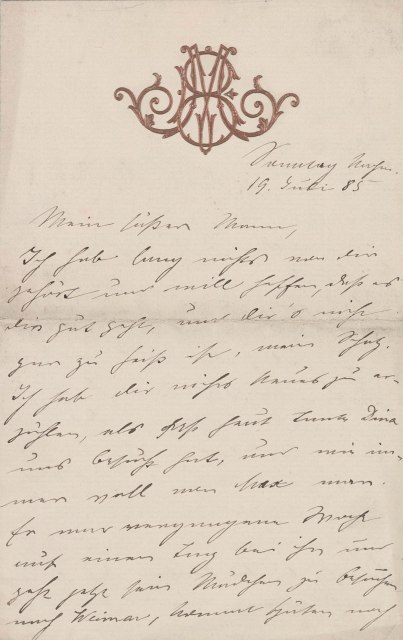 Sonntag Nachm.
19. Juli 85
Mein süßer Mann,
Ich hab lang nichts von dir
gehört und will hoffen, daß es
dir gut geht, und dir's nicht
gar zu heiß ist, mein Schatz.
Ich hab dir nichts Neues zu er-
zählen, als daß heut Tante Dina
uns besucht hat, und wie im-
mer voll von Max war.
Er war vergangene Woche
auf einen Tag bei ihr und
geht jetzt sein Mädchen zu besuchen
nach Weimar, kommt noch